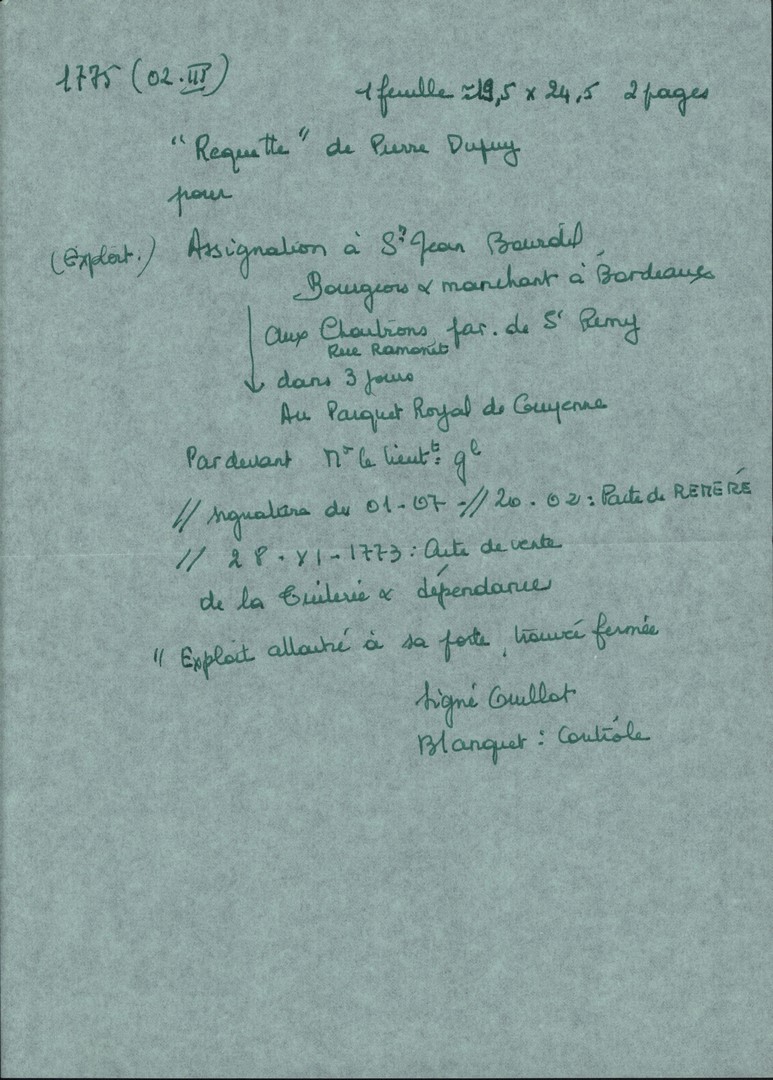 1775 (02.III)
1 feuille ≃ 19,5 x 24,5 2 pages
"Requette" de Pierre Dupuy
pour
(Exploit.) Assignation à Sr Jean Bourdil
Bourgeois & marchant à Bordeaux
aux Chartrons par. de St Remy
Rue Ramonet
dans 3 jours
Au Parquet Royal de Guyenne
Par devant Mr le lieutt: gl
// signature du 01-07 - // 20.02 : Pacte de RÉMÉRÉ
// 28.XI-1773 : Acte de vente
de la Tuilerie & dépendances
" Exploit à sa porte, trouvée fermée
Signé Guillot
Blanquet : Contrôle